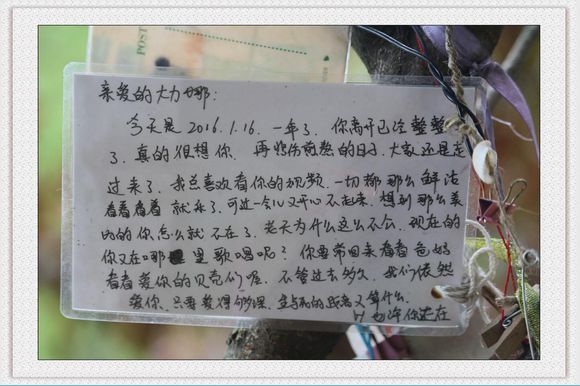 POST
亲爱的大力娜:
今天是2016.1.16.一年了.你离开已经整整
了.真的很想你.再悲伤煎熬的日子.大家还是走
过来了.我总喜欢看你的视频.一切都那么鲜活
看着看着就乐了.可过一会儿又开心不起来.想到那么美
的你怎么就不在了.老天为什么这么不公.现在的
你又在哪里歌唱呢?你要常回来看看爸妈
看看爱你的贝壳们喔.不管过去多久.我们依然
爱你.只要爱得够深.生与死的距离又算什么.
也许你还在